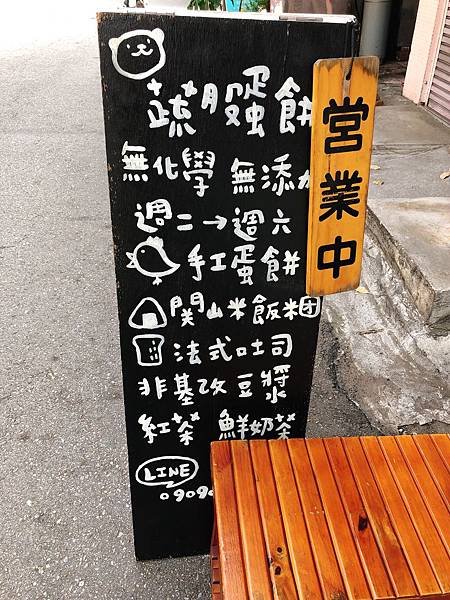 無化學 無添加
週二→週六
手工蛋餅
關山米飯糰
法式吐司
非基改豆漿
紅茶 鮮奶茶
LINE
0909
營業中